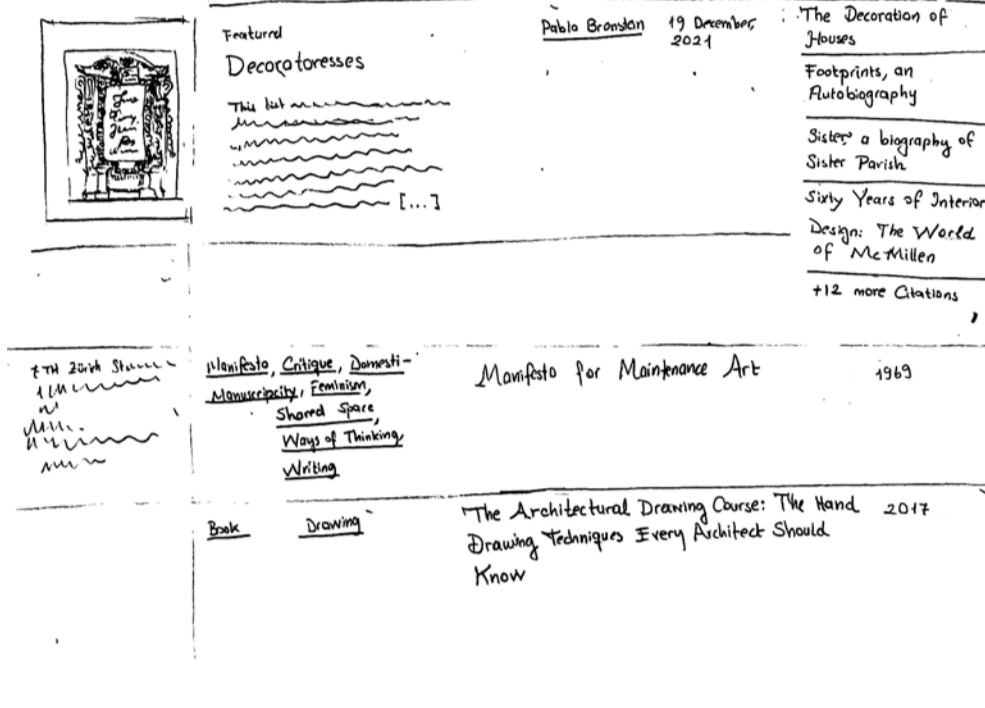 Featured
Decoratoresses
This list
[...]
Pablo Bronstan
19 December,
2021
The Decoration of
Houses
Footprints, an
Autobiography
Sister, a biography of
Sister Parish
Sixty Years of Interior
Design: The World
of McMillen
+12 more Citations
ETH Zürich
Manifesto, Critique, Domesti-
Feminism,
Shared Space,
Ways of Thinking,
Writing
Manifesto for Maintenance Art
1969
Book
Drawing
The Architectural Drawing Course: The Hand
Drawing Techniques Every Architect Should
Know
2017